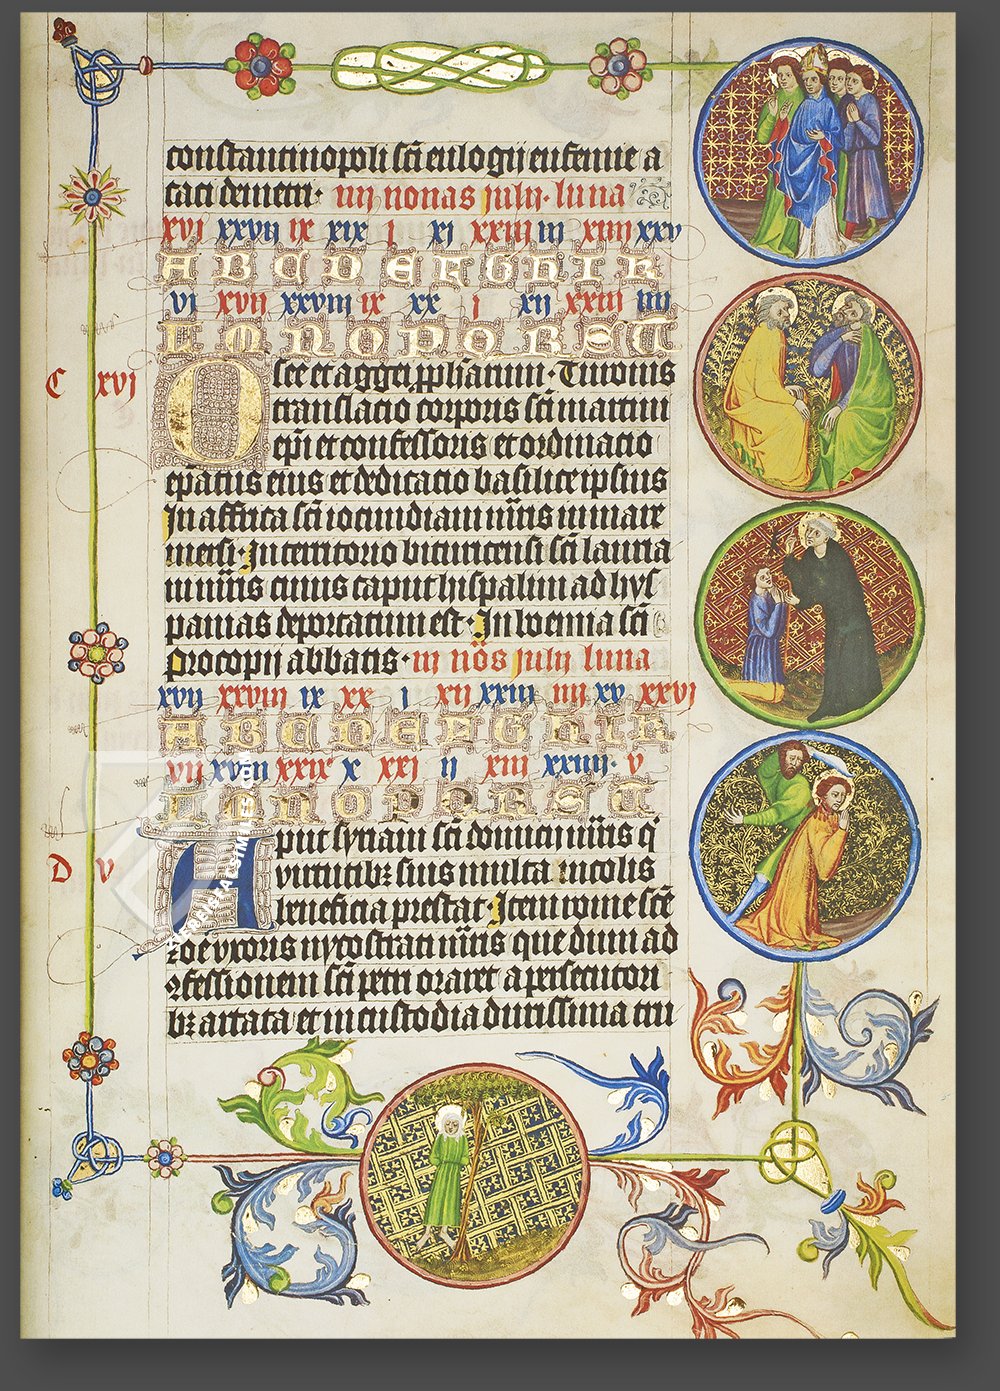 constantinopoli sc̄i eulogij eufemie a
caci demetri· iiij nonas julij· luna
xvj xxvij ix xix j xj xxiij iij xiiij xxv
A B C D E F G H I K
vi xvij xxviij ix xx j xij xxiij iiij
L M N O P Q R S T
C xvj
Osee et aggei ꝓphārum· Turonis
translacio corporis sc̄i martini
ep̄i et confessoris et ordinacio
ep̄atus eius et dedicacio basilice ipsius
In affrica sc̄i iocundiani m̄ris in mare
mersi· In territorio bituricensi sc̄i lauria
ni m̄ris cuius caput hispalim ad hys
panias deportatum est· In boemia sc̄i
procopij abbatis· iij nōs julij luna
xvij xxviij ix xx j xij xxiij iiij xv xxvj
A B C D E F G H I K
vij xviij xxix x xxj ij xiij xxiiij· v
L M N O P Q R S T
D v
Aput syriam sc̄i domicij m̄ris q̇
virtutibꝫ suis multa incolis
beneficia prestat· Item rome sc̄e
zoe vxoris nycostrati m̄ris que dum ad
ꝯfessionem sc̄i petri oraret a persecutori
bꝫ artata et in custodia durissima tru